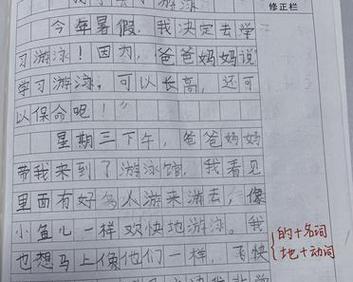 修正栏
今年暑假，我决定去学
习游泳！因为，爸爸妈妈说
学习游泳，可以长高，还可
以保命呢！
星期三下午，爸爸妈妈
带我来到了游泳馆，我看见
里面有好多人游来游去，像
小鱼儿一样欢快地游泳。我
也想马上像他们一样，飞快
的+名词
地+动词